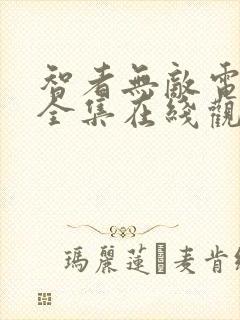 智者無敵電
全集在綫觀
瑪麗蓮麦肯